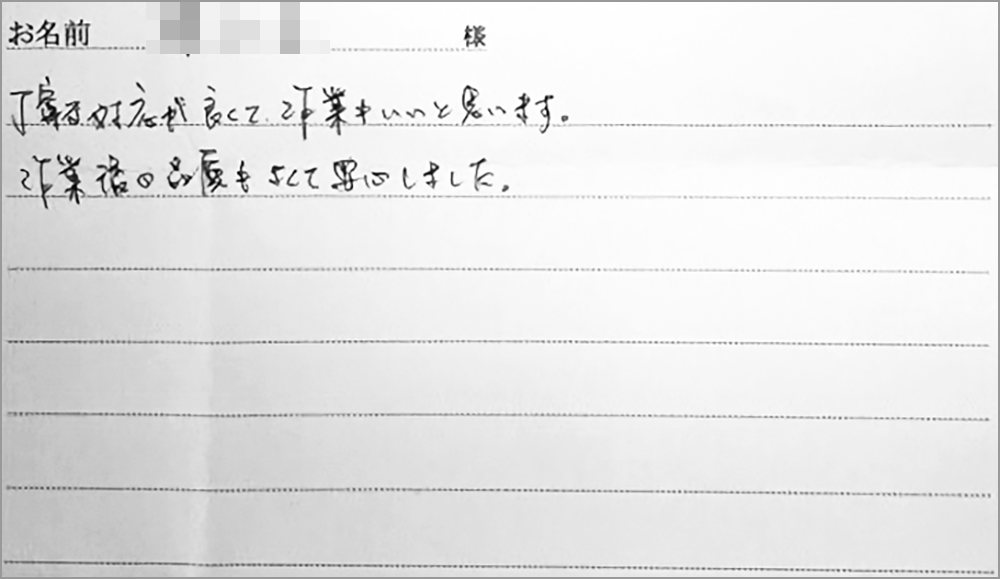 お名前 様
丁寧な対応が良くて、作業もいいと思います。
作業後の品質もよくて安心しました。